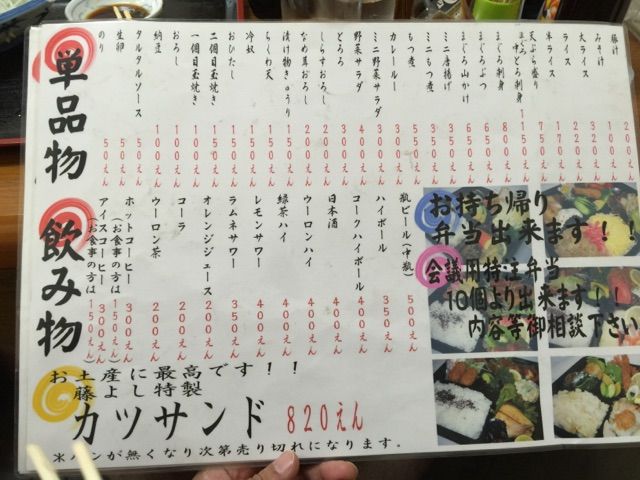 単品物
豚汁 200えん
みそ汁 100えん
大ライス
ライス
半ライス
天ぷら盛り 750えん
まぐろ中とろ刺身 1150えん
まぐろ刺身 800えん
まぐろぶつ
まぐろ山かけ
ミニ唐揚げ
ミニもつ煮 350えん
もつ煮 550えん
カレールー
ミニ野菜サラダ 300えん
野菜サラダ 400えん
とろろ 300えん
しらすおろし 200えん
なめ茸おろし 200えん
漬け物きゅうり 150えん
ちくわ天 150えん
冷奴 150えん
おひたし 150えん
二個目玉焼き 150えん
一個目玉焼き 100えん
おろし 100えん
納豆 100えん
タルタルソース 50えん
生卵 50えん
のり 50えん
飲み物
瓶ビール(中瓶) 500えん
ハイボール 350えん
コークハイボール 400えん
日本酒 400えん
ウーロンハイ 400えん
緑茶ハイ 400えん
レモンサワー 400えん
ラムネサワー 350えん
オレンジジュース 200えん
コーラ 200えん
ウーロン茶 200えん
ホットコーヒー 300えん
(お食事の方は150えん)
アイスコーヒー 300えん
(お食事の方は150えん)
お持ち帰り
弁当出来ます!!
会議用特注弁当
10個より出来ます!!
内容等御相談下さい
お土産に最高です!!
藤よし特製
カツサンド 820えん
*パンが無くなり次第売り切れになります。